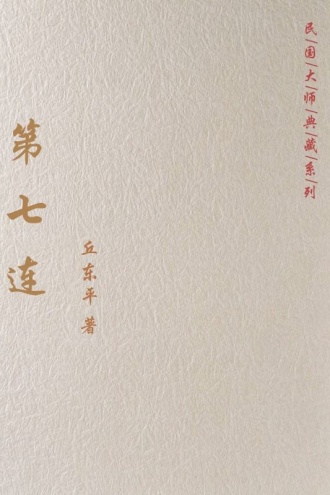 民国大师典藏系列
第七连
丘东平著